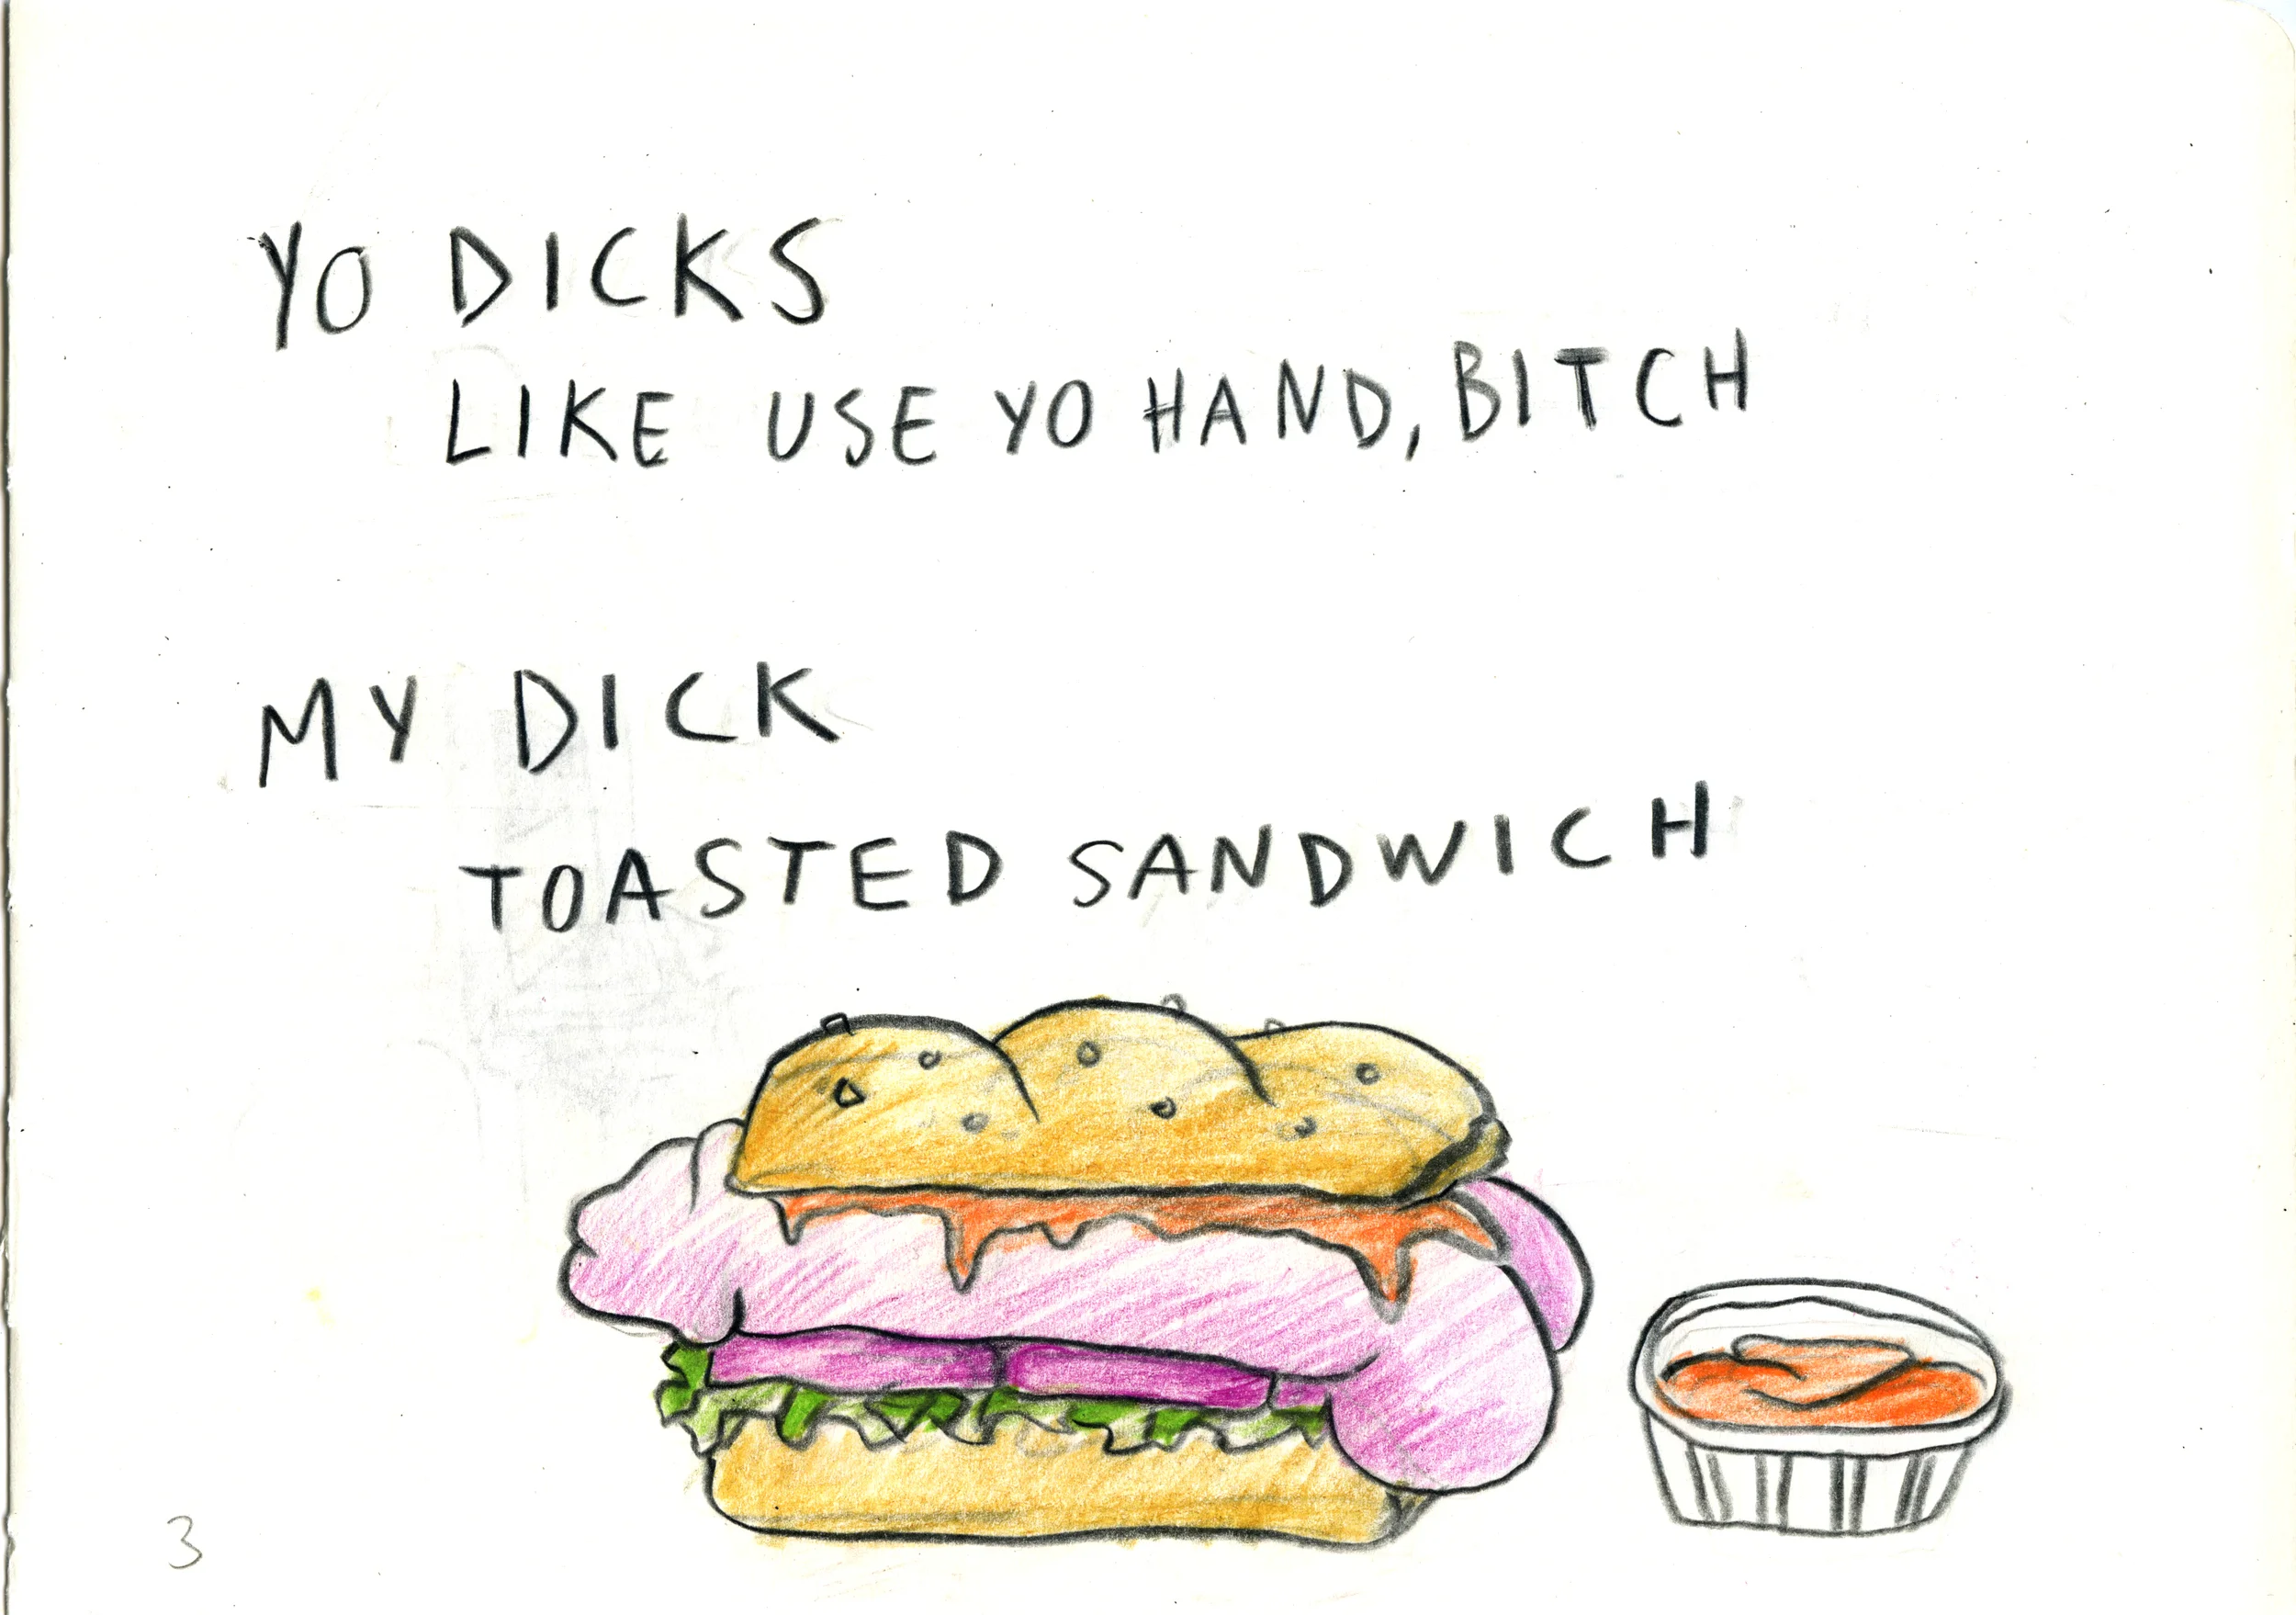 YO DICKS
LIKE USE YO HAND, BITCH
MY DICK
TOASTED SANDWICH
3